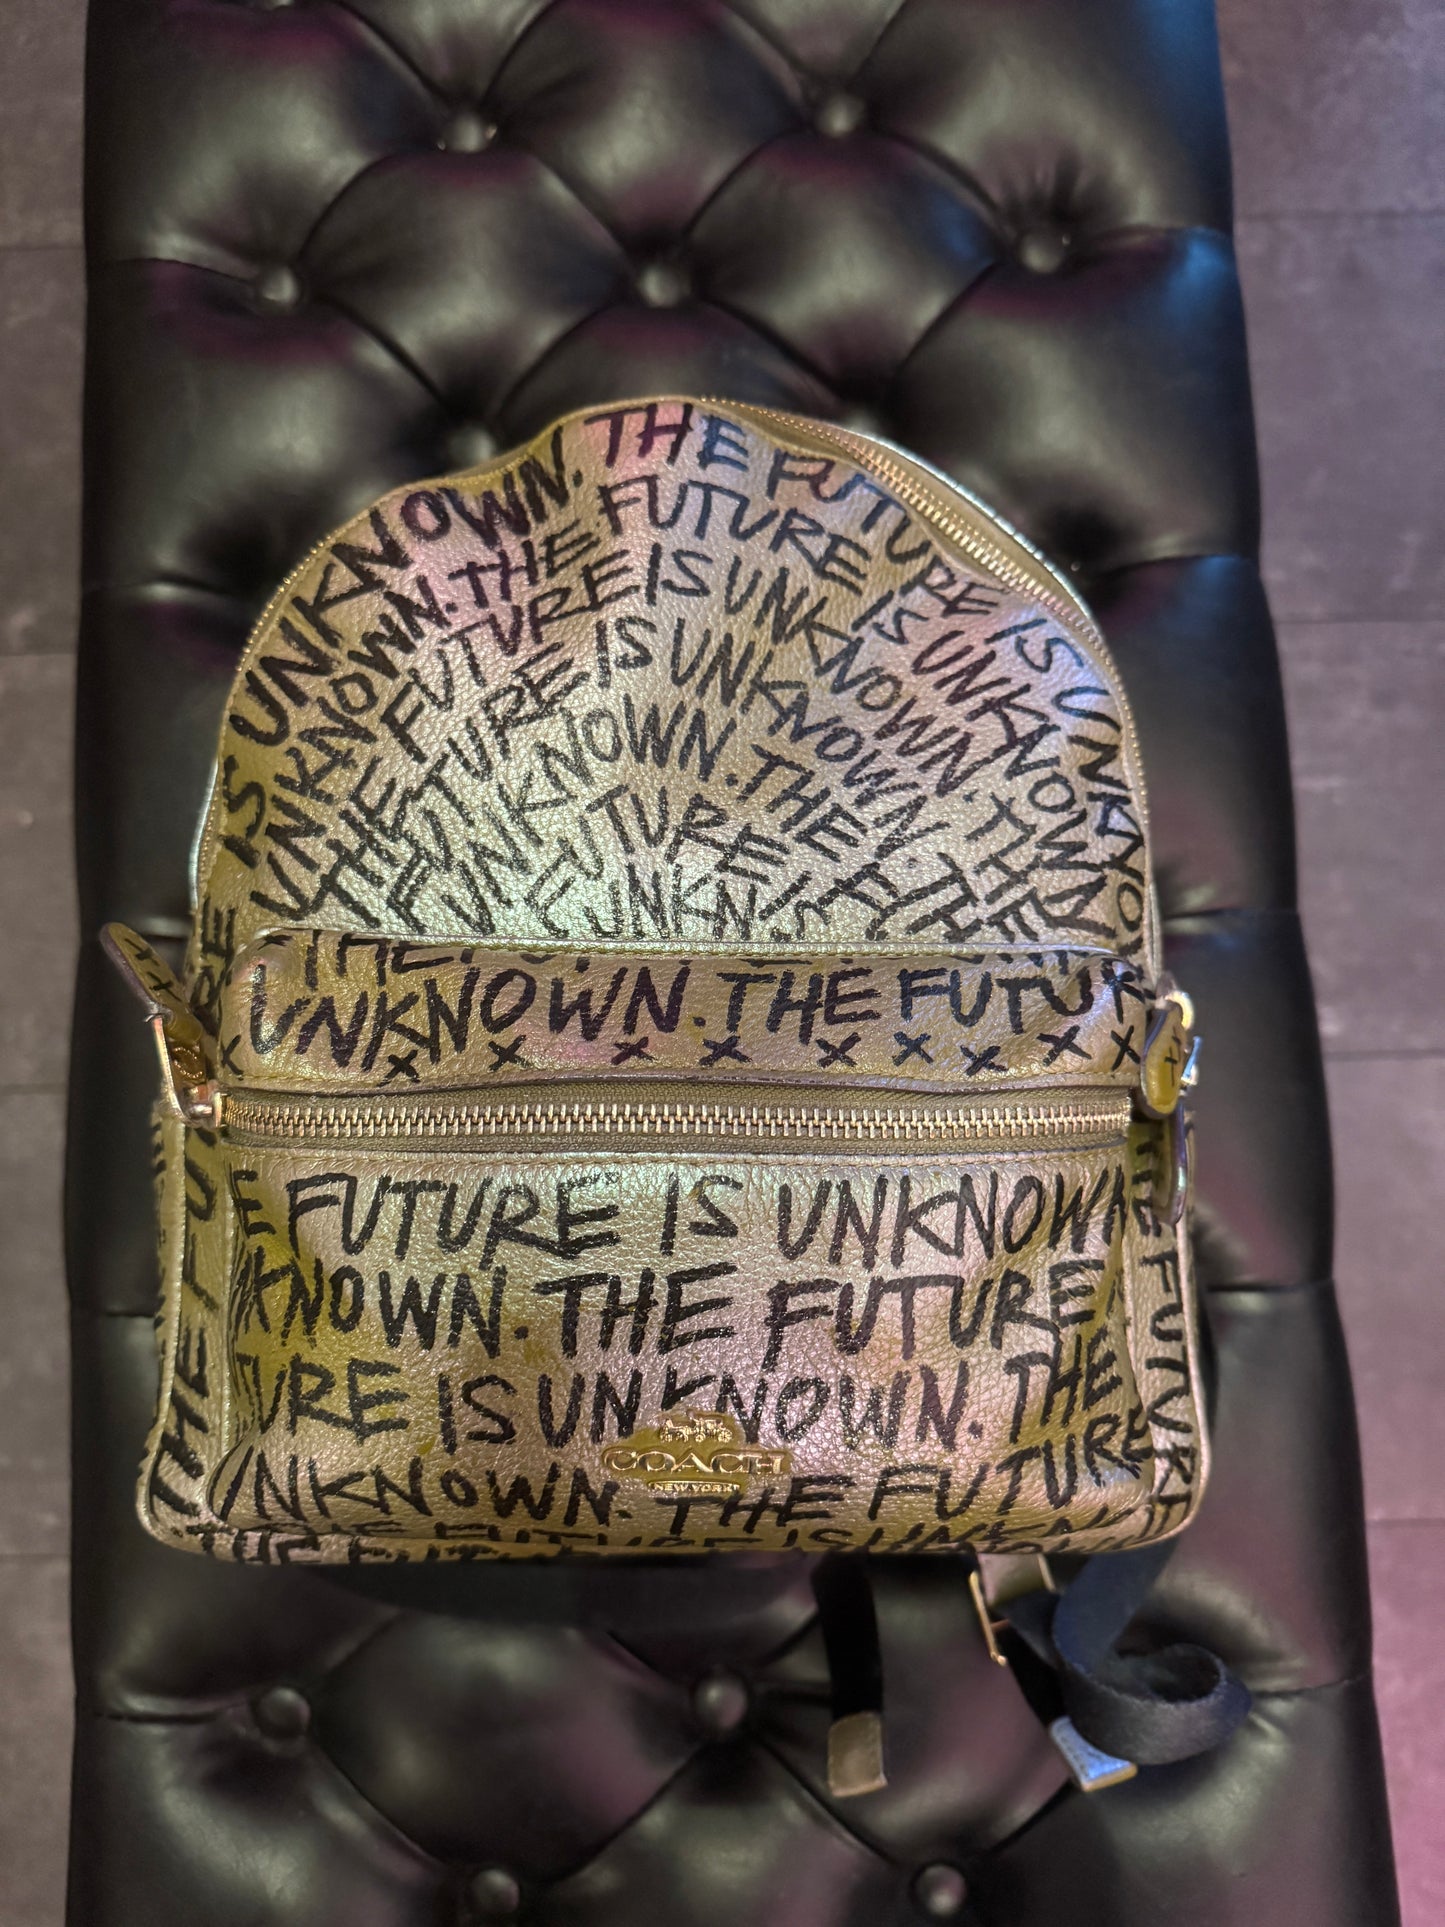 IS UNKNOWN. THE FUTURE IS UNKNOWN
UNKNOWN. THE FUTURE IS UNKNOWN. THE
THE FUTURE IS UNKNOWN.
FUTURE IS UNKNOWN.
UNKNOWN. THE
FUTURE
THE
UNKNOWN. THE FUTU
x x x x x x x x x
E FUTURE IS UNKNOWN
KNOWN. THE FUTURE
URE IS UNKNOWN. THE
COACH
NEW YORK
UNKNOWN. THE FUTURE
THE FUTURE
THE FUTURE